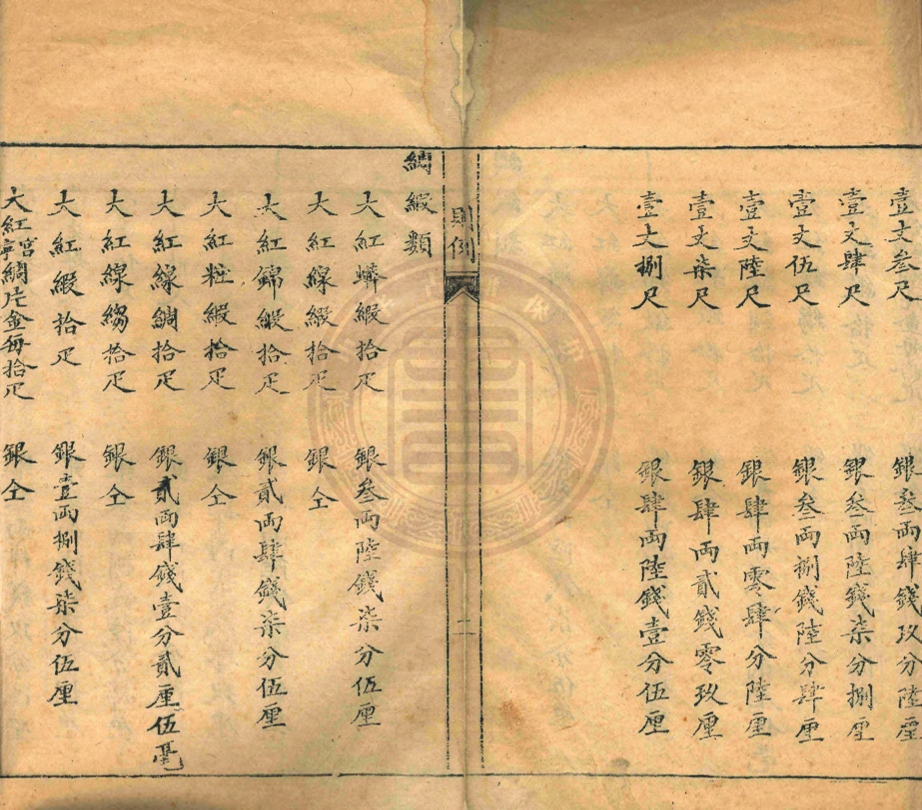 壹丈叁尺 銀叁両肆錢玖分陸厘
壹丈肆尺 銀叁両陸錢柒分捌厘
壹丈伍尺 銀叁両捌錢陸分肆厘
壹丈陸尺 銀肆両零肆分陸厘
壹丈柒尺 銀肆両貳錢零玖厘
壹丈捌尺 銀肆両陸錢壹分伍厘
則例
二
綢緞類
大紅蟒緞拾疋 銀叁両陸錢柒分伍厘
大紅線緞拾疋 銀仝
大紅錦緞拾疋 銀貳両肆錢柒分伍厘
大紅粧緞拾疋 銀仝
大紅線綢拾疋 銀貳両肆錢壹分貳厘伍毫
大紅線縐拾疋 銀仝
大紅緞拾疋 銀壹両捌錢柒分伍厘
大紅宮寧綢片金每拾疋 銀仝